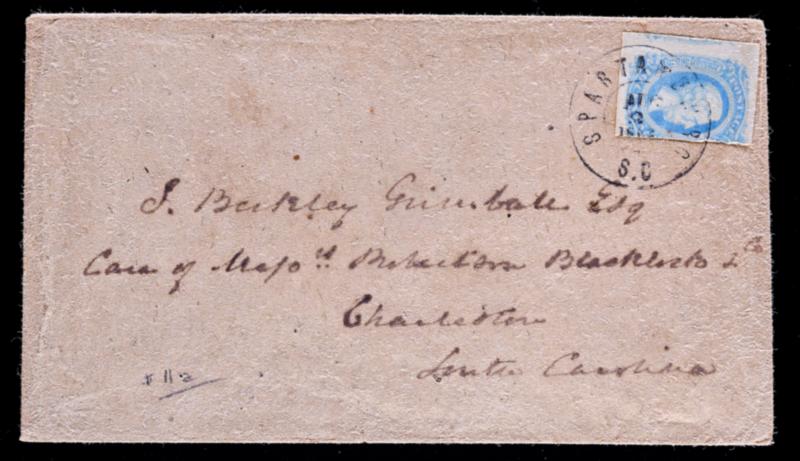 SPARTA
S.C
J. Berkley Grimball Esq
Care of Messrs Robertson Blacklock & Co
Charleston
South Carolina